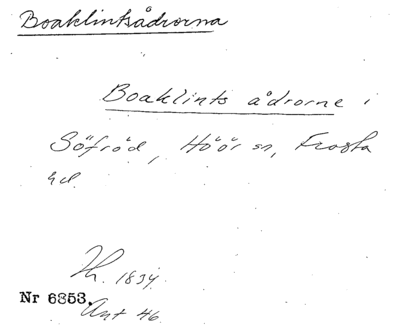 Boaklintsådrorna
Boaklints ådrorne i
Söfröd, Höör sn, Frosta
hd.
Th. 1834.
Nr 6853.
Ant 46